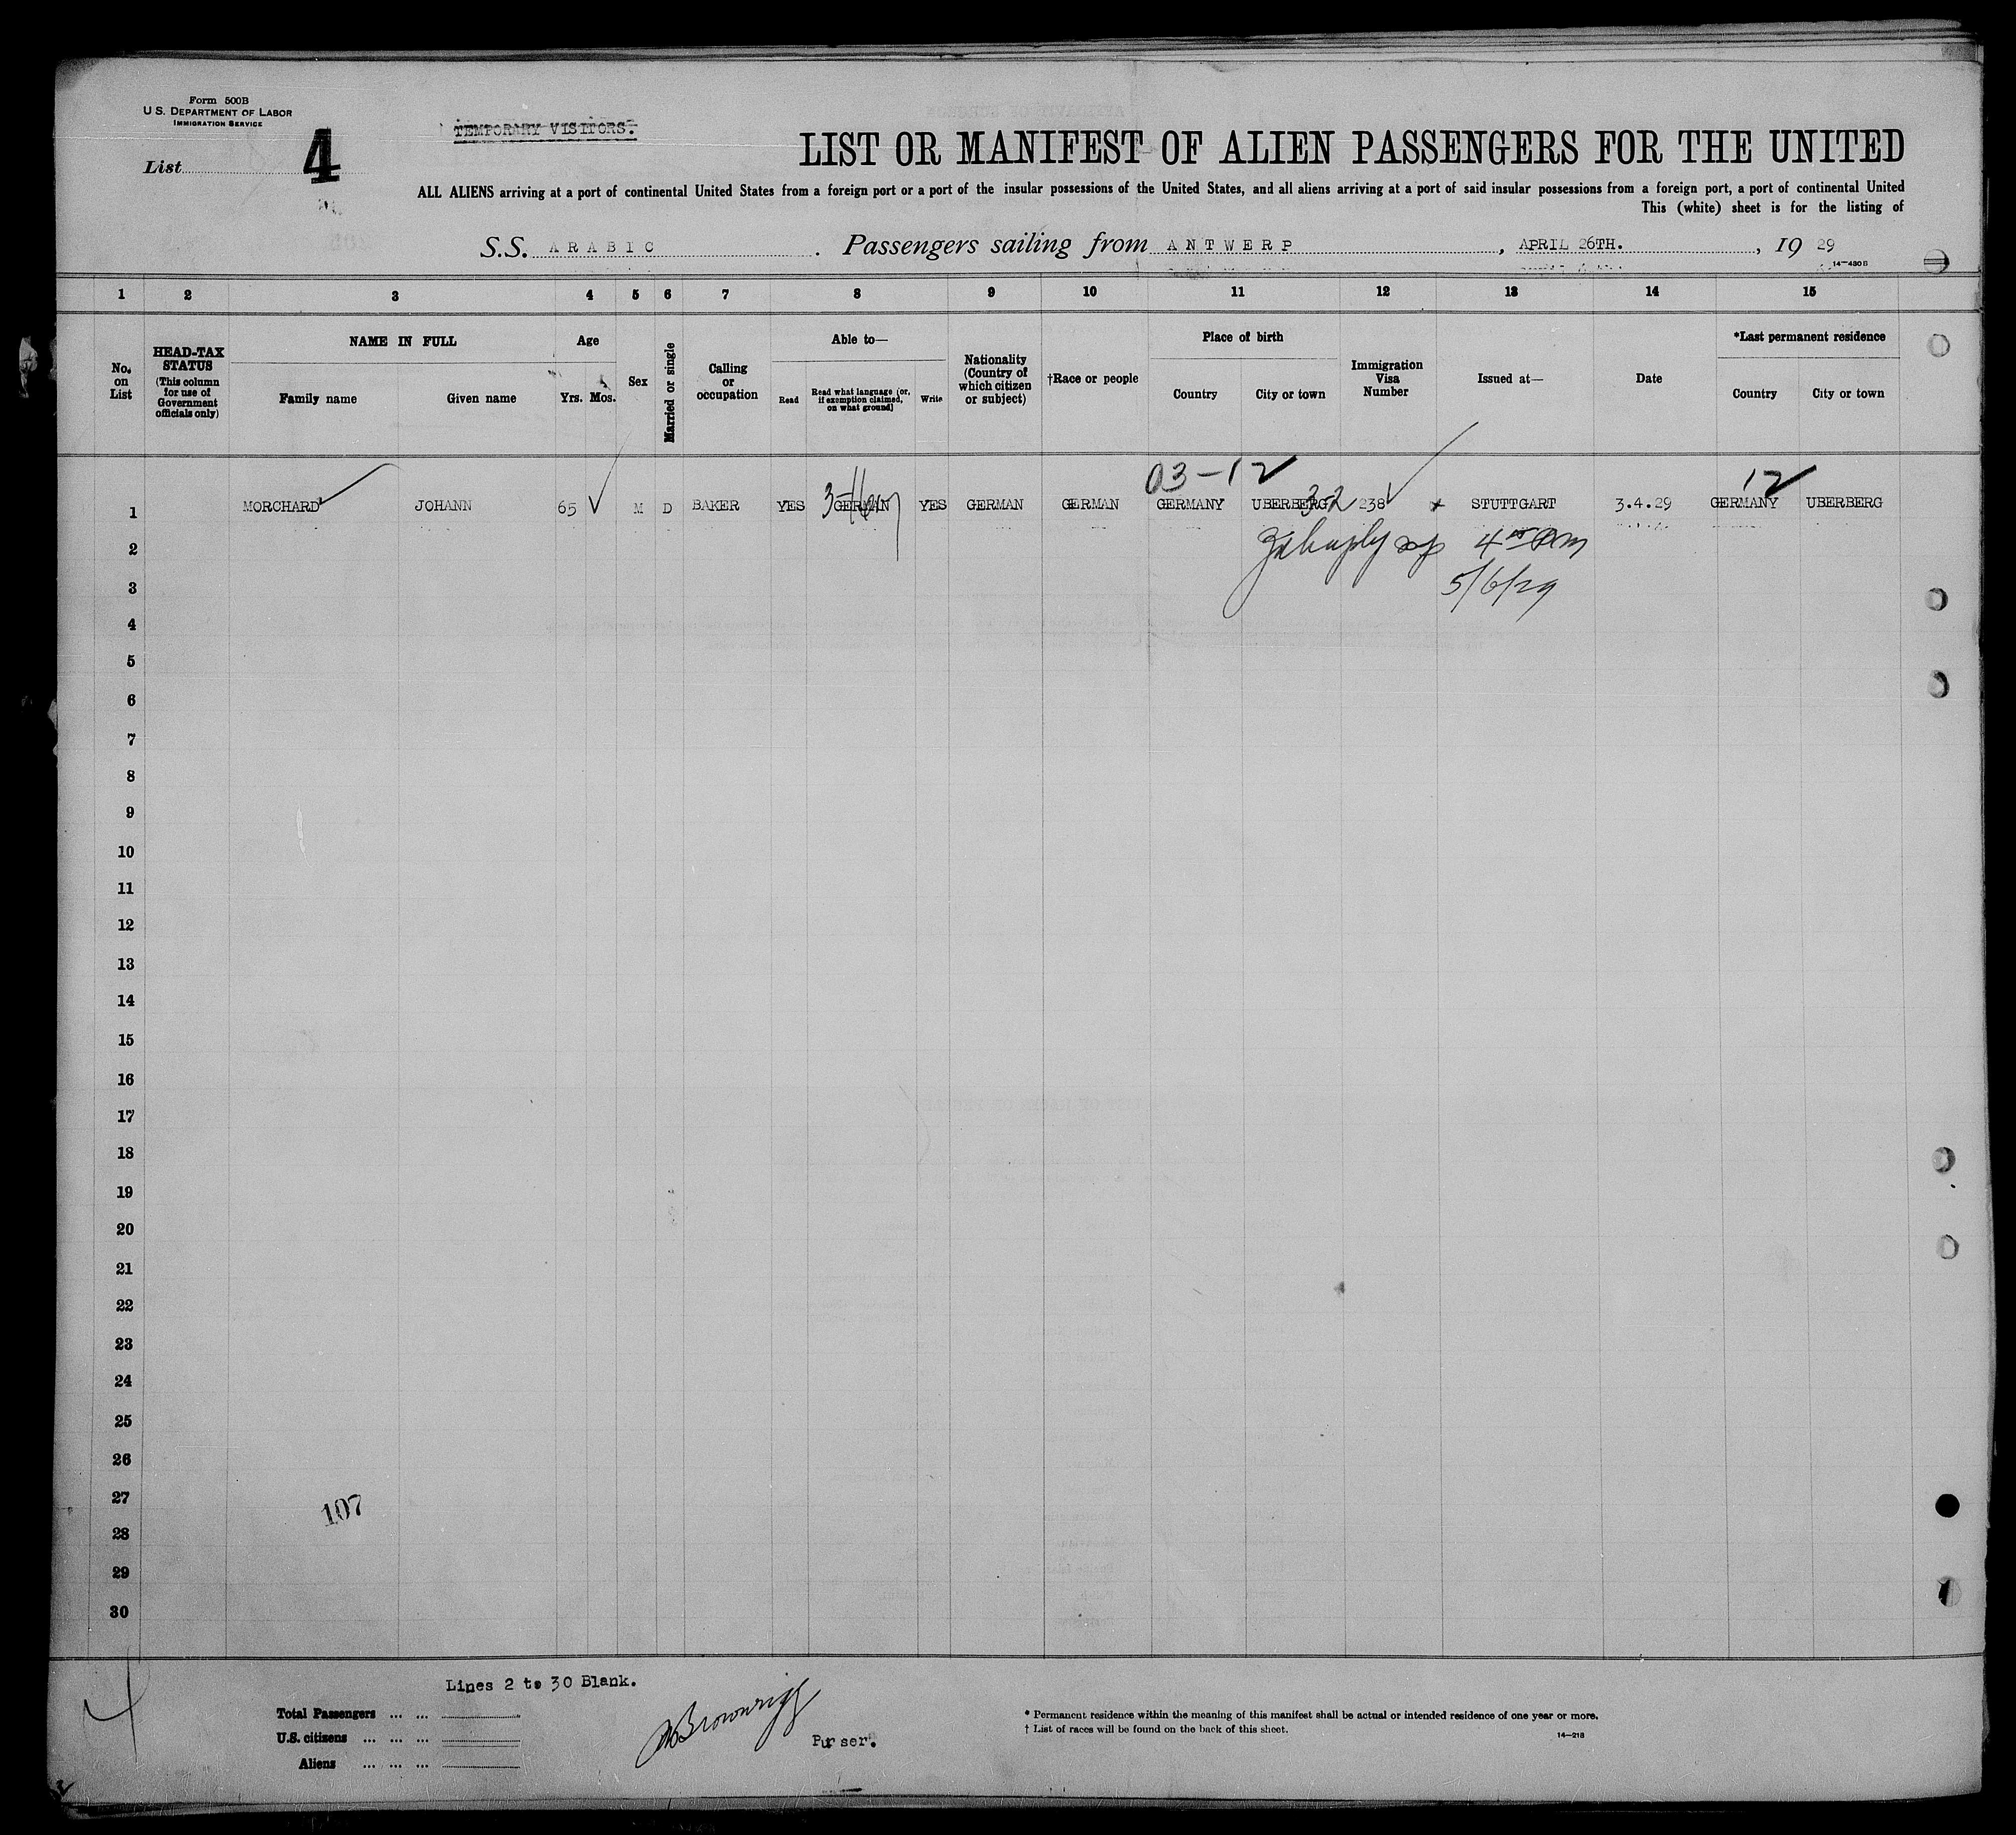 Form 500B
U. S. DEPARTMENT OF LABOR
IMMIGRATION SERVICE
List 4
TEMPORARY VISITORS.
LIST OR MANIFEST OF ALIEN PASSENGERS FOR THE UNITED
ALL ALIENS arriving at a port of continental United States from a foreign port or a port of the insular possessions of the United States, and all aliens arriving at a port of said insular possessions from a foreign port, a port of continental United
This (white) sheet is for the listing of
S.S. ARABIC . Passengers sailing from ANTWERP , APRIL 26TH. , 19 29
14—430B
1 2 3 4 5 6 7 8 9 10 11 12 13 14 15
No. on List
HEAD-TAX STATUS (This column for use of Government officials only)
NAME IN FULL
Family name Given name
Age
Yrs. Mos.
Sex
Married or single
Calling or occupation
Able to—
Read Read what language [or, if exemption claimed, on what ground] Write
Nationality (Country of which citizen or subject)
†Race or people
Place of birth
Country City or town
Immigration Visa Number
Issued at—
Date
*Last permanent residence
Country City or town
03-12 12
1 MORCHARD JOHANN 65 M D BAKER YES GERMAN YES GERMAN GERMAN GERMANY UBERBERG 3-2 238 STUTTGART 3.4.29 GERMANY UBERBERG
2
3 5/6/29
4
5
6
7
8
9
10
11
12
13
14
15
16
17
18
19
20
21
22
23
24
25
26
27
107
28
29
30
Lines 2 to 30 Blank.
Total Passengers ... ...
U.S. citizens ... ... ...
Aliens ... ... ...
Brownrigg
Purser.
* Permanent residence within the meaning of this manifest shall be actual or intended residence of one year or more.
† List of races will be found on the back of this sheet.
14—218